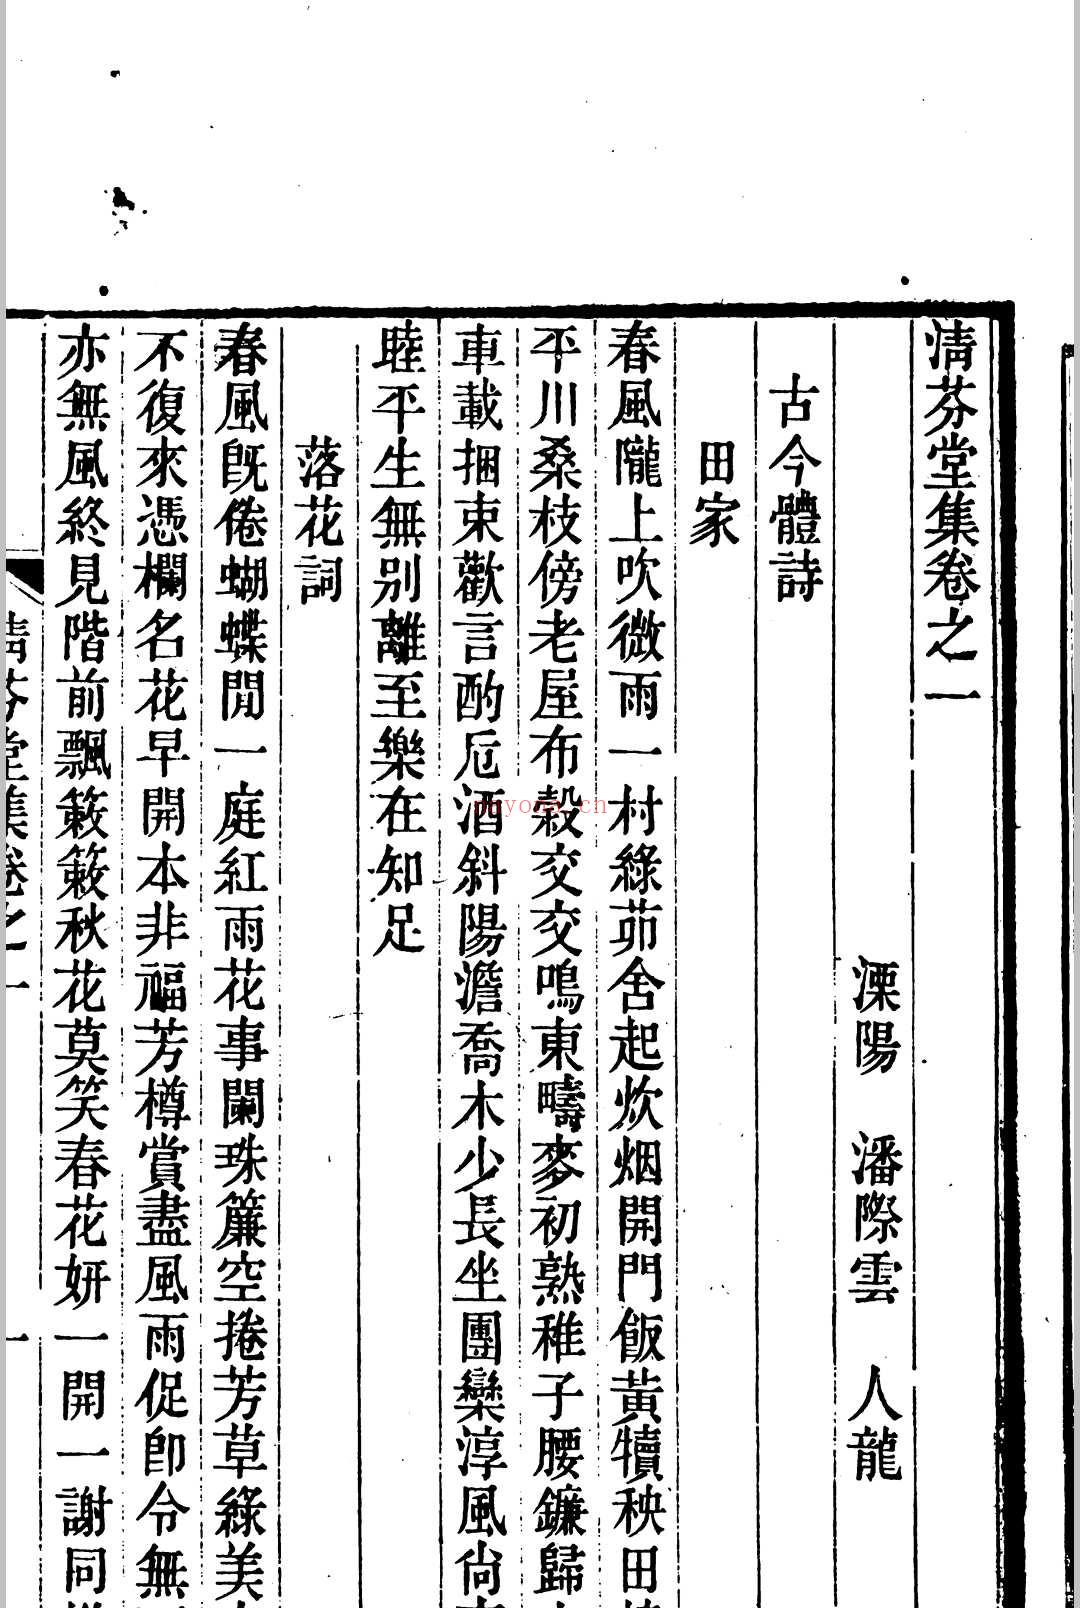 清芬堂集卷之一
溧陽 潘際雲 人龍
古今體詩
田家
春風隴上吹微雨一村綠茆舍起炊烟開門飯黃犢秧田
平川桑枝傍老屋布穀交交鳴東疇麥初熟稚子腰鐮歸
車載捆束歡言酌卮酒斜陽澹喬木少長坐團欒淳風尙
睦平生無别離至樂在知足
落花詞
春風旣倦蝴蝶閒一庭紅雨花事闌珠簾空捲芳草綠美
不復來憑欄名花早開本非福芳樽賞盡風雨促卽令無
亦無風終見階前飄簌簌秋花莫笑春花妍一開一謝同
清芬堂集卷之一
一